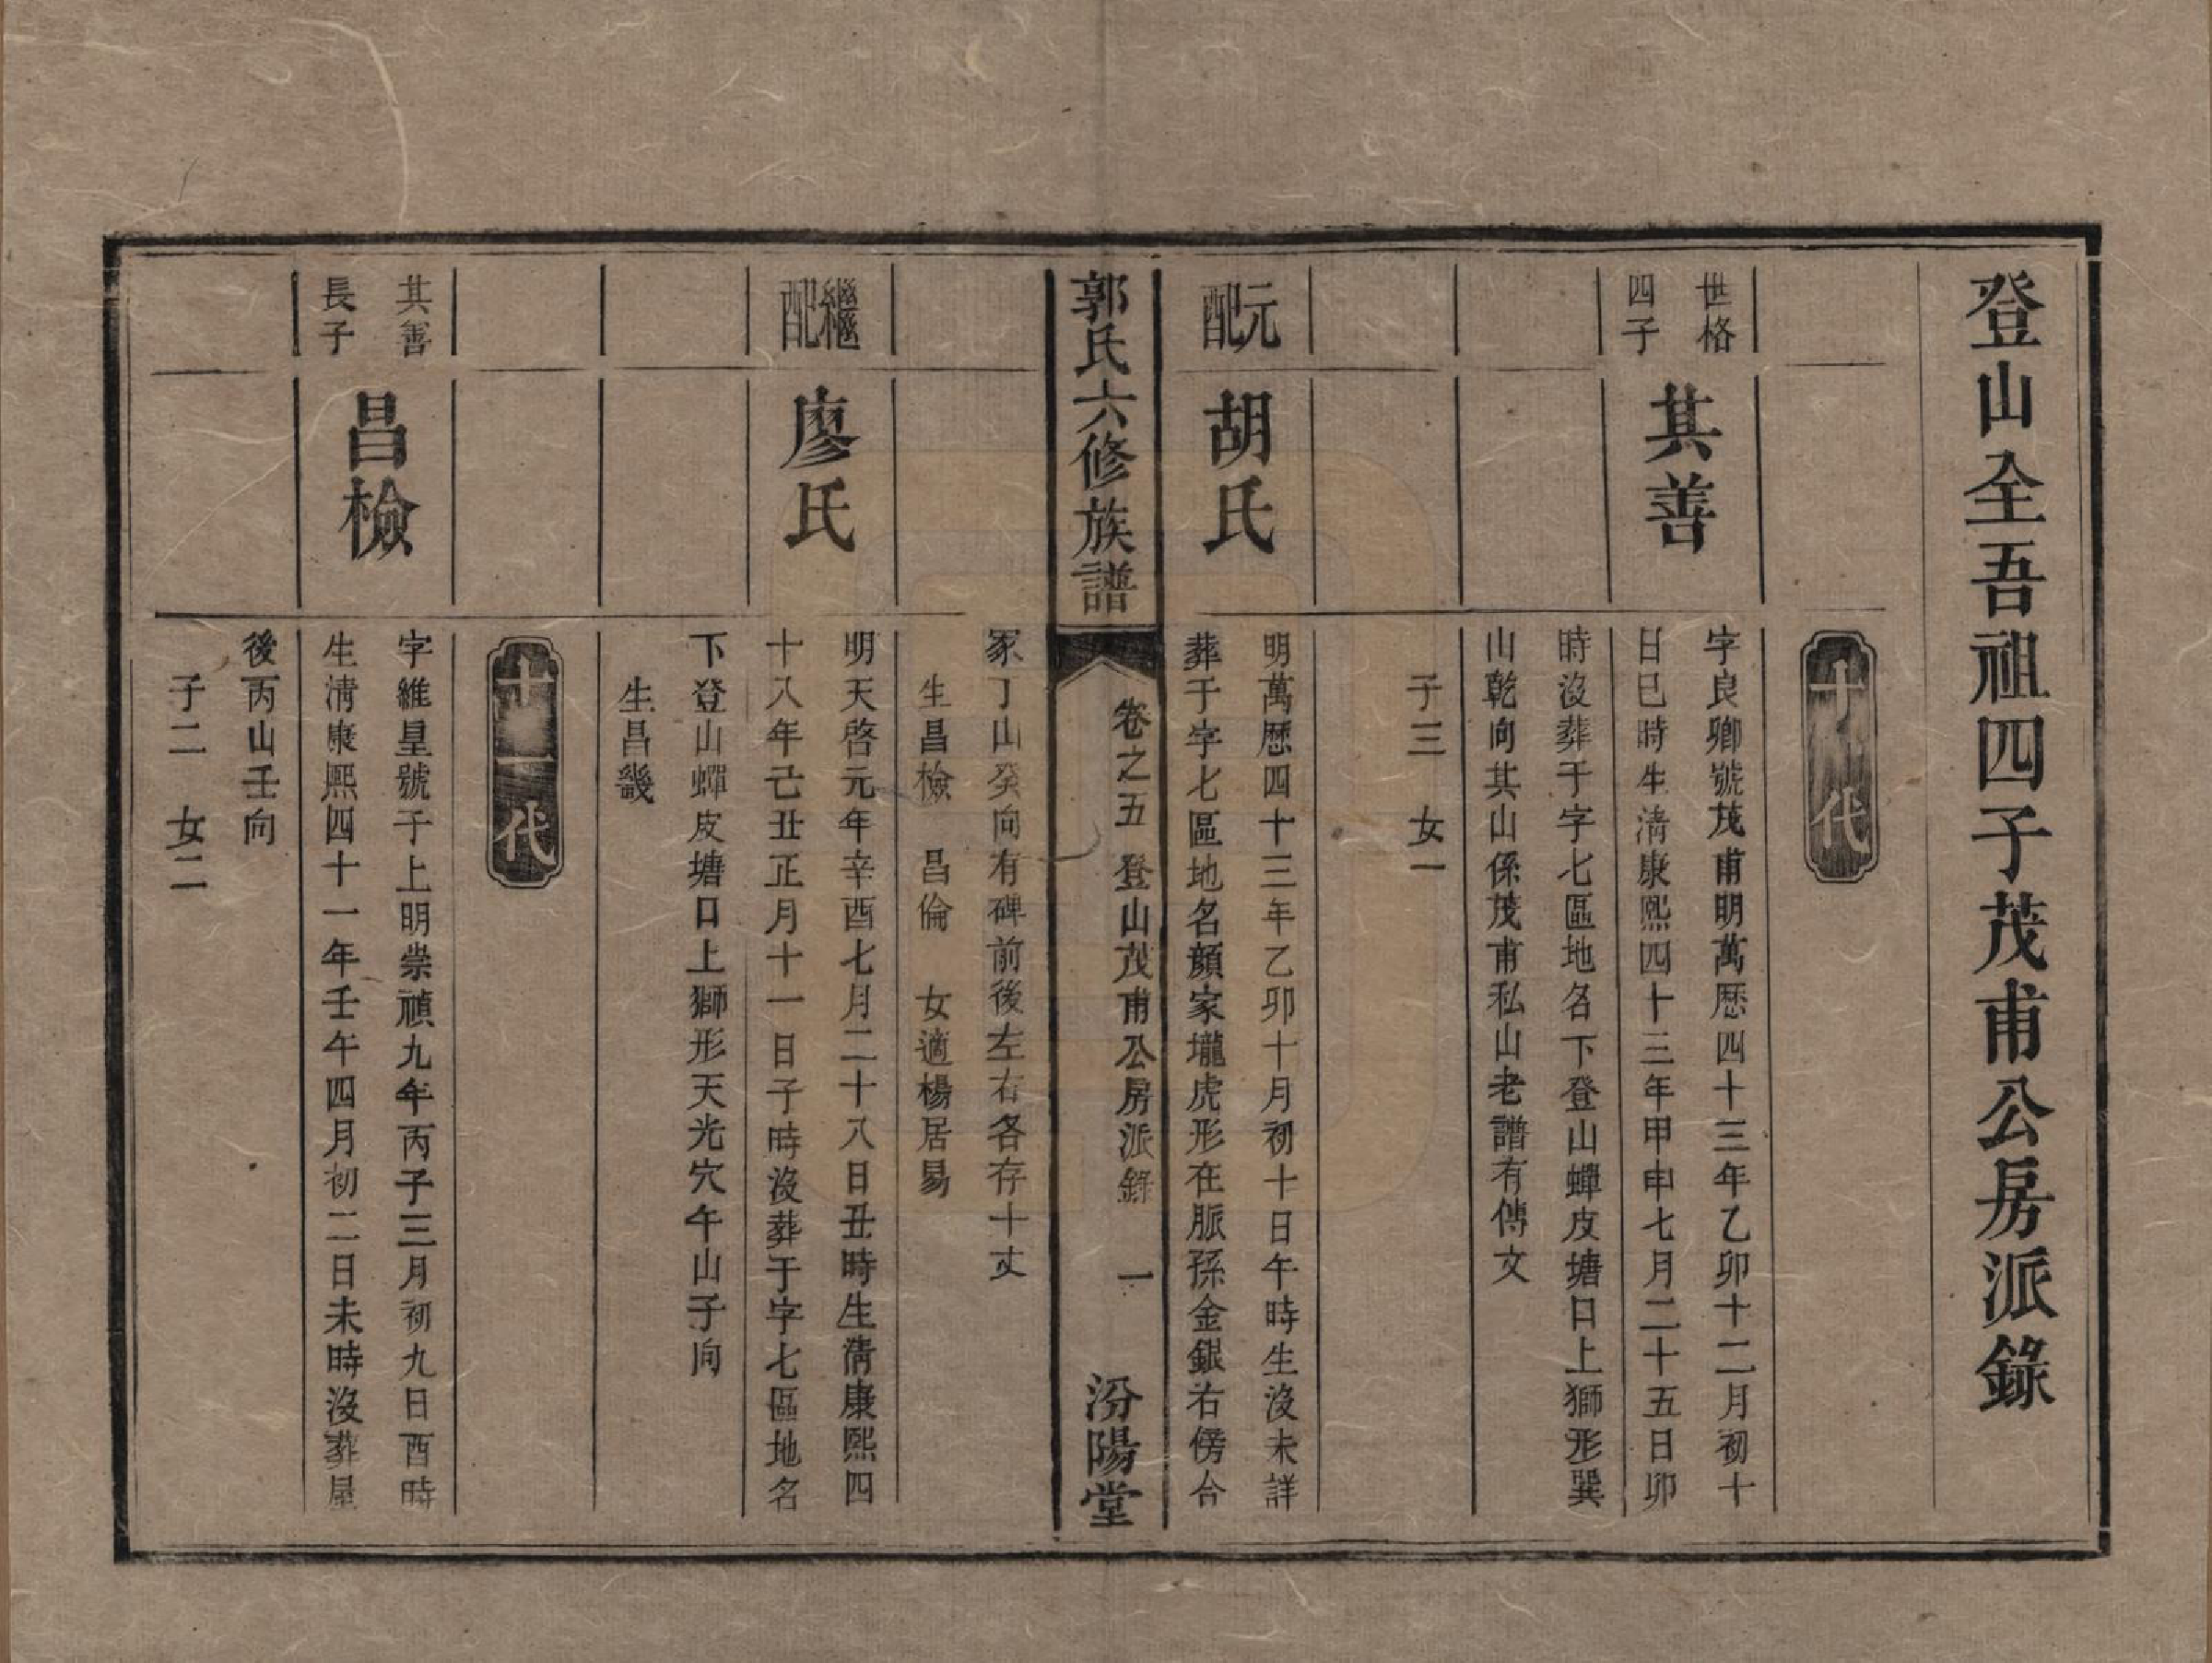 登山全吾祖四子茂甫公房派錄
十代
世格
四子
其善
字良卿號茂甫明萬歷四十三年乙卯十二月初十
日巳時生淸康熙四十三年甲申七月二十五日卯
時沒葬于字七區地名下登山蟬皮塘口上獅形巽
山乾向其山係茂甫私山老譜有傳文
子三 女一
元配
胡氏
明萬歷四十三年乙卯十月初十日午時生沒未詳
葬于字七區地名顏家壠虎形在脈孫金銀右傍合
郭氏六修族譜
卷之五 登山茂甫公房派錄 一
汾陽堂
冢丁山癸向有碑前後左右各存十丈
生昌檢 昌倫 女適楊居易
繼配
廖氏
明天啓元年辛酉七月二十八日丑時生淸康熙四
十八年己丑正月十一日子時沒葬于字七區地名
下登山蟬皮塘口上獅形天光穴午山子向
生昌畿
十一代
其善
長子
昌檢
字維皇號于上明崇禎九年丙子三月初九日酉時
生淸康熙四十一年壬午四月初二日未時沒葬屋
後丙山壬向
子二 女二